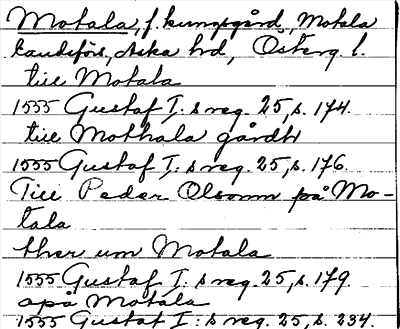 Motala, f. kungsgård, Motala
landsförs, Aska hd, Österg. l.
till Motala
1555 Gustaf I:s reg. 25, s. 174.
till Mothala gårdh
1555 Gustaf I:s reg. 25, s. 176.
Till Peder Olsonn på Mo-
tala
ther um Motala
1555 Gustaf I:s reg. 25, s. 179.
opå Motala
1555 Gustaf I:s reg. 25, s. 234.